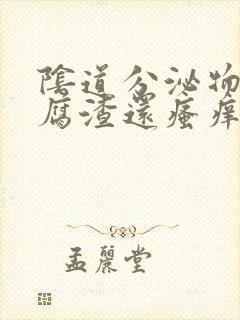 陰道分泌物
腐渣還瘙痒
孟麗堂